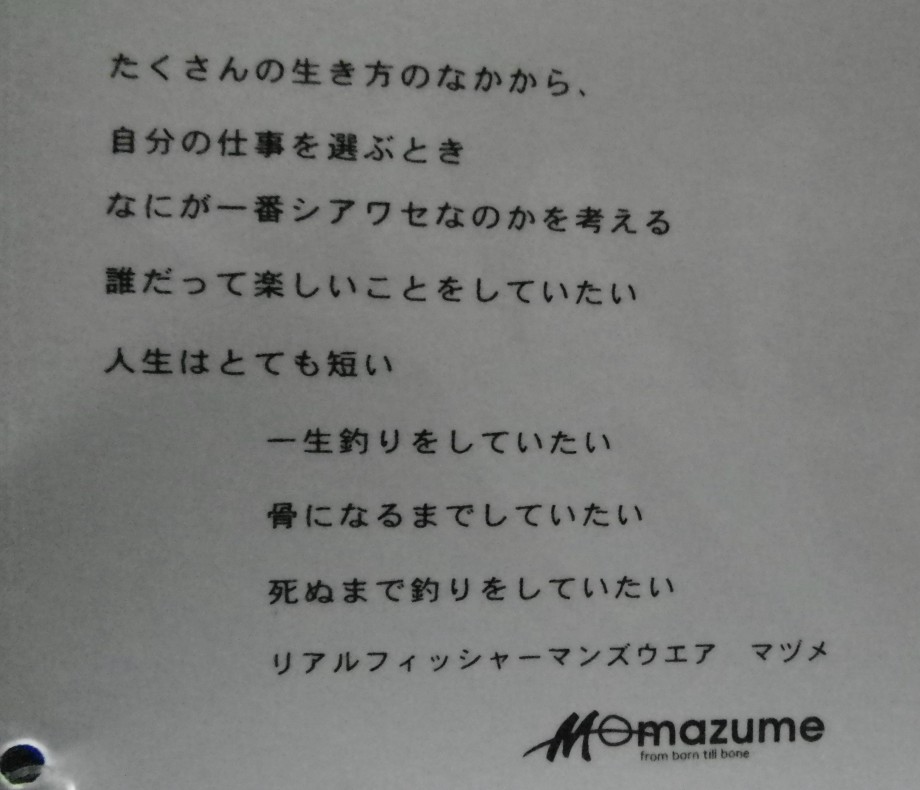 たくさんの生き方のなかから、
自分の仕事を選ぶとき
なにが一番シアワセなのかを考える
誰だって楽しいことをしていたい
人生はとても短い
一生釣りをしていたい
骨になるまでしていたい
死ぬまで釣りをしていたい
リアルフィッシャーマンズウエア　マヅメ
mazume
from born till bone